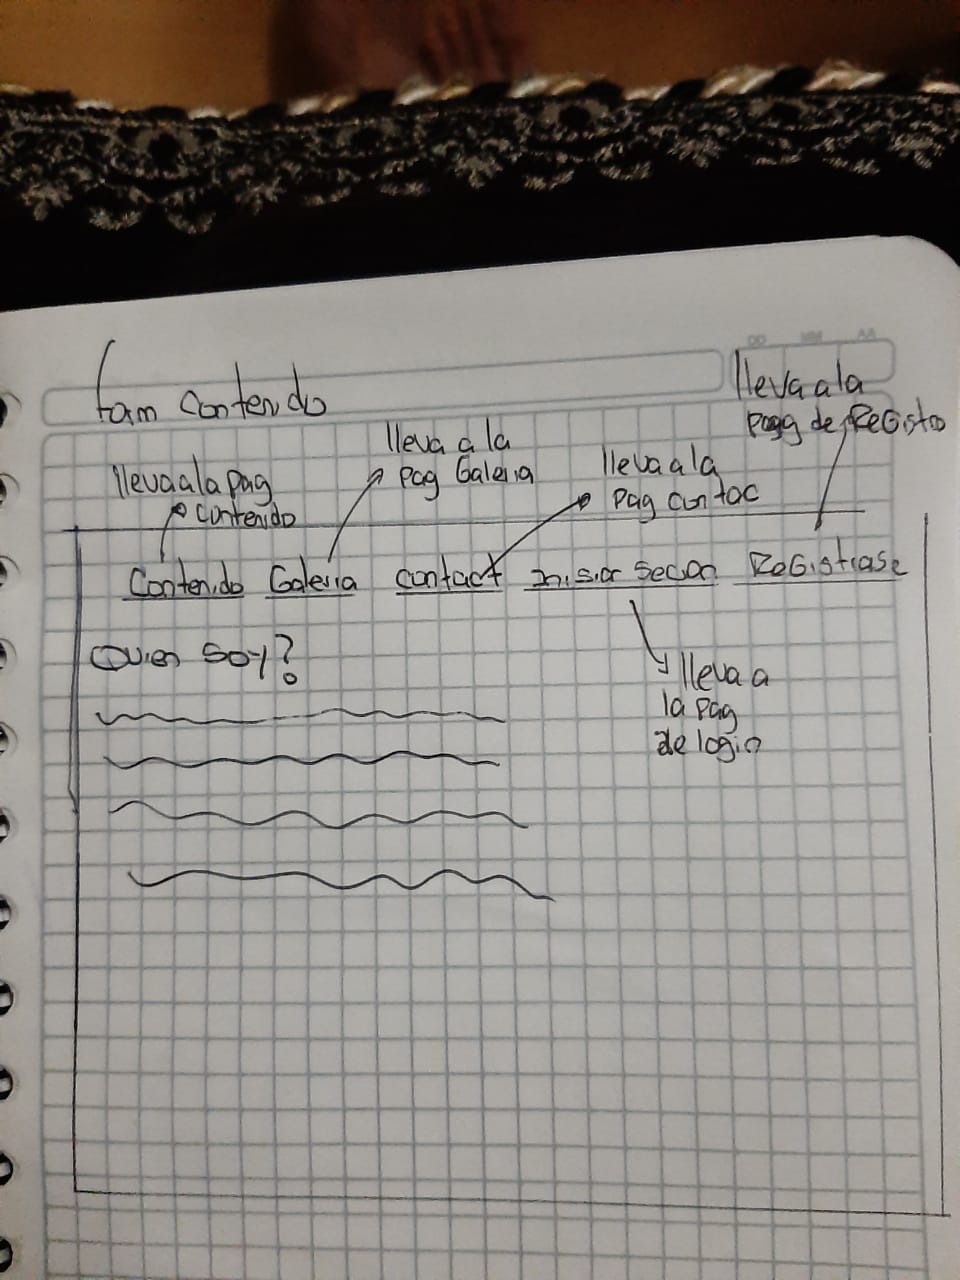 DD MM AA
fam contenido
lleva a la
pag de Registro
lleva a la
pag Galeria
lleva a la
pag contac
lleva a la pag
contenido
Contenido Galeria contact inisiar secion Registrase
Quien soy?
lleva a
la pag
de login